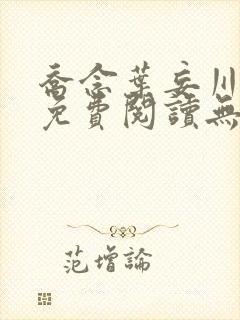 喬念葉妄川
免費閱讀無
范增論